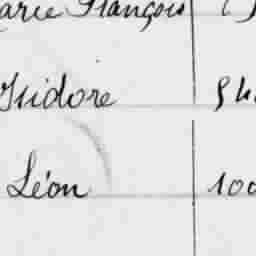 arie François
Isidore
Léon 100